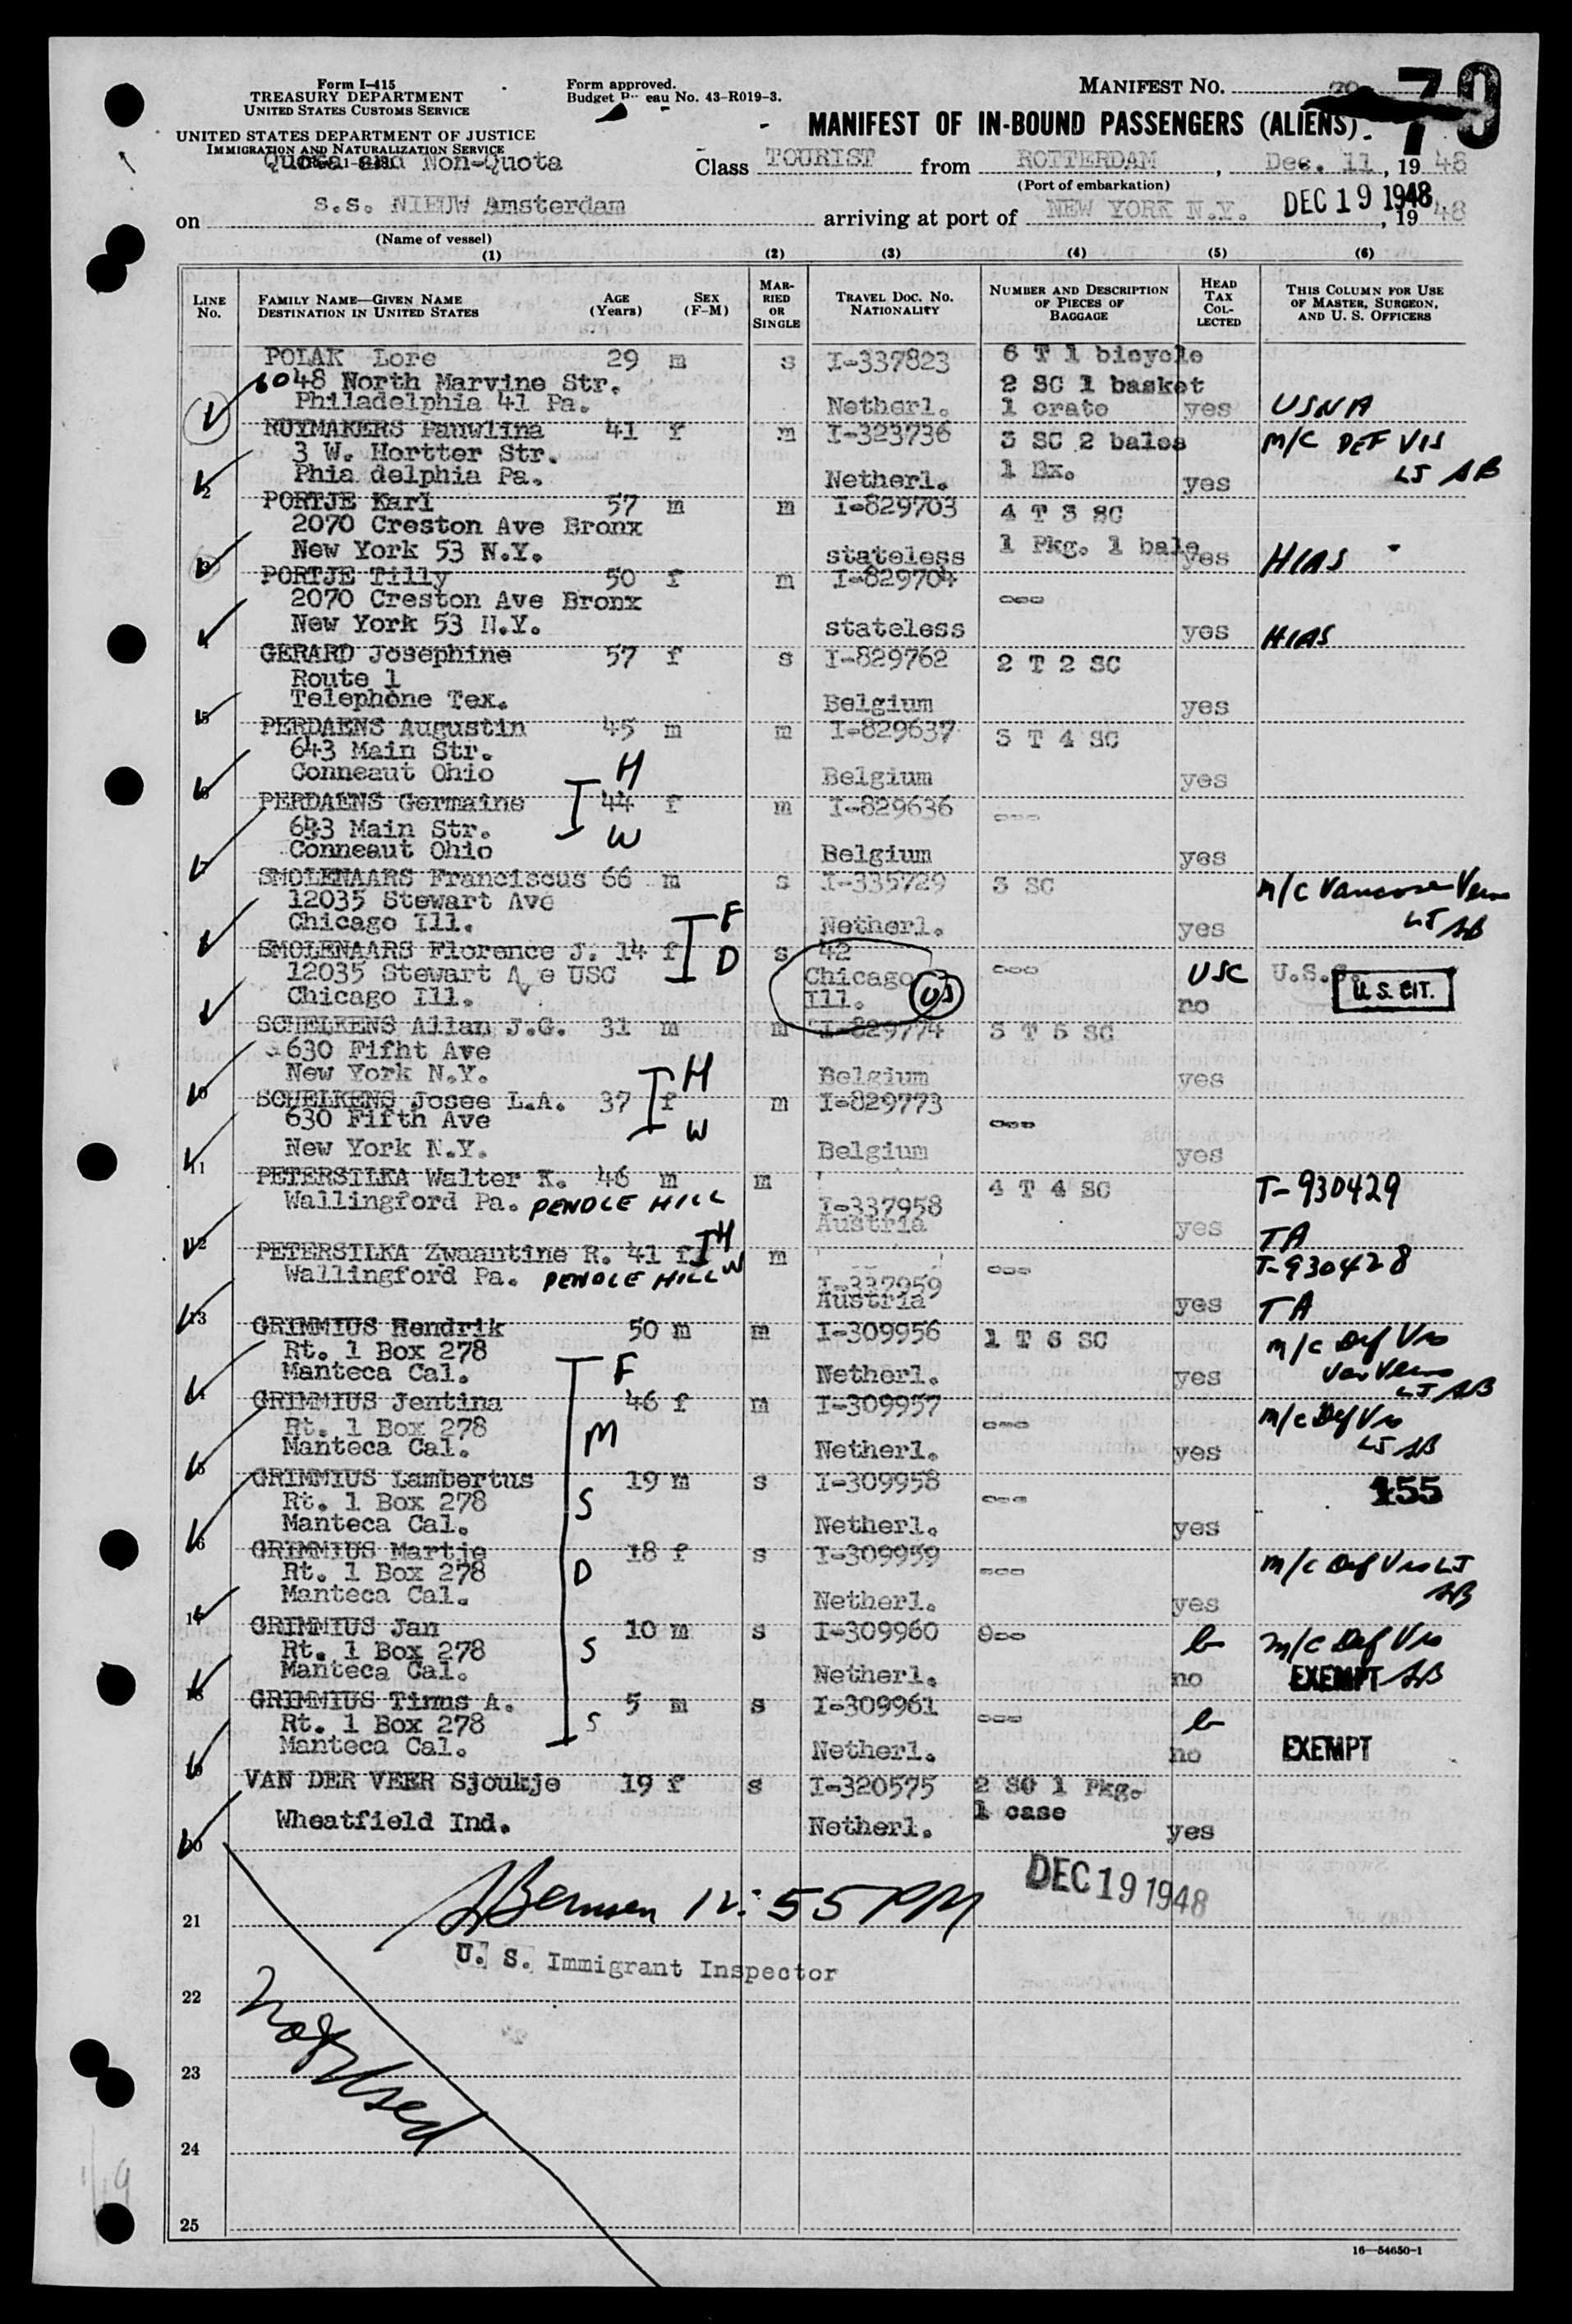 Form I-415
TREASURY DEPARTMENT
UNITED STATES CUSTOMS SERVICE
UNITED STATES DEPARTMENT OF JUSTICE
IMMIGRATION AND NATURALIZATION SERVICE
Form approved.
Budget Bureau No. 43-R019-3.
MANIFEST NO.
79
MANIFEST OF IN-BOUND PASSENGERS (ALIENS)
Quota and Non-Quota
Class TOURIST from ROTTERDAM, Dec. 11, 1948
(Port of embarkation)
on s.s. NIEUW Amsterdam arriving at port of NEW YORK N.Y. DEC 19 1948, 1948
(Name of vessel)
(1) (2) (3) (4) (5) (6)
LINE No. FAMILY NAME—GIVEN NAME DESTINATION IN UNITED STATES AGE (Years) SEX (F-M) MARRIED OR SINGLE TRAVEL DOC. NO. NATIONALITY NUMBER AND DESCRIPTION OF PIECES OF BAGGAGE HEAD TAX COLLECTED THIS COLUMN FOR USE OF MASTER, SURGEON, AND U. S. OFFICERS
POLAK Lore 29 m s I-337823 6 T 1 bicycle
6048 North Marvine Str. 2 SC 1 basket
Philadelphia 41 Pa. Netherl. 1 crate yes USNA
RUYMAKERS Pauwlina 41 f m I-323736 3 SC 2 bales M/C DEF VIS
3 W. Hortter Str. LJ AB
2 Phia delphia Pa. Netherl. 1 Bx. yes
PORTJE Karl 57 m m I-829703 4 T 3 SC
2070 Creston Ave Bronx
3 New York 53 N.Y. stateless 1 Pkg. 1 bale yes HIAS
PORTJE Tilly 50 f m I-829704 ---
2070 Creston Ave Bronx
4 New York 53 N.Y. stateless yes HIAS
GERARD Josephine 57 f s I-829762 2 T 2 SC
Route 1
5 Telephone Tex. Belgium yes
PERDAENS Augustin 45 m m I-829637 3 T 4 SC
643 Main Str.
6 Conneaut Ohio H Belgium yes
PERDAENS Germaine 44 f m I-829636 ---
643 Main Str. W
7 Conneaut Ohio Belgium yes
SMOLENAARS Franciscus 66 m s I-335729 3 SC m/c
12035 Stewart Ave LJ AB
Chicago Ill. F Netherl. yes
SMOLENAARS Florence J. 14 f D s 42 ---
12035 Stewart Ave USC Chicago USC U.S.C. U.S. CIT.
Chicago Ill. Ill. US no
SCHELKENS Allan J.G. 31 m m I-829774 5 T 5 SC
630 Fifht Ave
10 New York N.Y. H Belgium yes
SCHELKENS Josee L.A. 37 f m I-829773 ---
630 Fifth Ave W
11 New York N.Y. Belgium yes
PETERSILKA Walter K. 46 m m 4 T 4 SC T-930429
Wallingford Pa. PENDLE HILL I-337958
12 Austria yes TA
PETERSILKA Zwaantine R. 41 f H m --- T-930428
Wallingford Pa. PENDLE HILL W I-337959
13 Austria yes TA
GRIMMIUS Hendrik 50 m m I-309956 1 T 6 SC m/c Def Vis
Rt. 1 Box 278 Var Veins
14 Manteca Cal. F Netherl. yes LJ AB
GRIMMIUS Jentina 46 f m I-309957 --- m/c Def Vis
Rt. 1 Box 278 M LJ AB
15 Manteca Cal. Netherl. yes
GRIMMIUS Lambertus 19 m s I-309958 --- 155
Rt. 1 Box 278 S
16 Manteca Cal. Netherl. yes
GRIMMIUS Martje 18 f s I-309959 --- m/c Def Vis LJ
Rt. 1 Box 278 D AB
17 Manteca Cal. Netherl. yes
GRIMMIUS Jan 10 m s I-309960 --- m/c Def Vis
Rt. 1 Box 278 S
18 Manteca Cal. Netherl. no EXEMPT AB
GRIMMIUS Tinus A. 5 m s I-309961 ---
Rt. 1 Box 278 S
19 Manteca Cal. Netherl. no EXEMPT
VAN DER VEER Sjoukje 19 f s I-320575 2 SC 1 Pkg.
Wheatfield Ind. Netherl. 1 case yes
20
12:55 PM DEC 19 1948
21
U. S. Immigrant Inspector
22
Not Used
23
24
25
16—54650-1